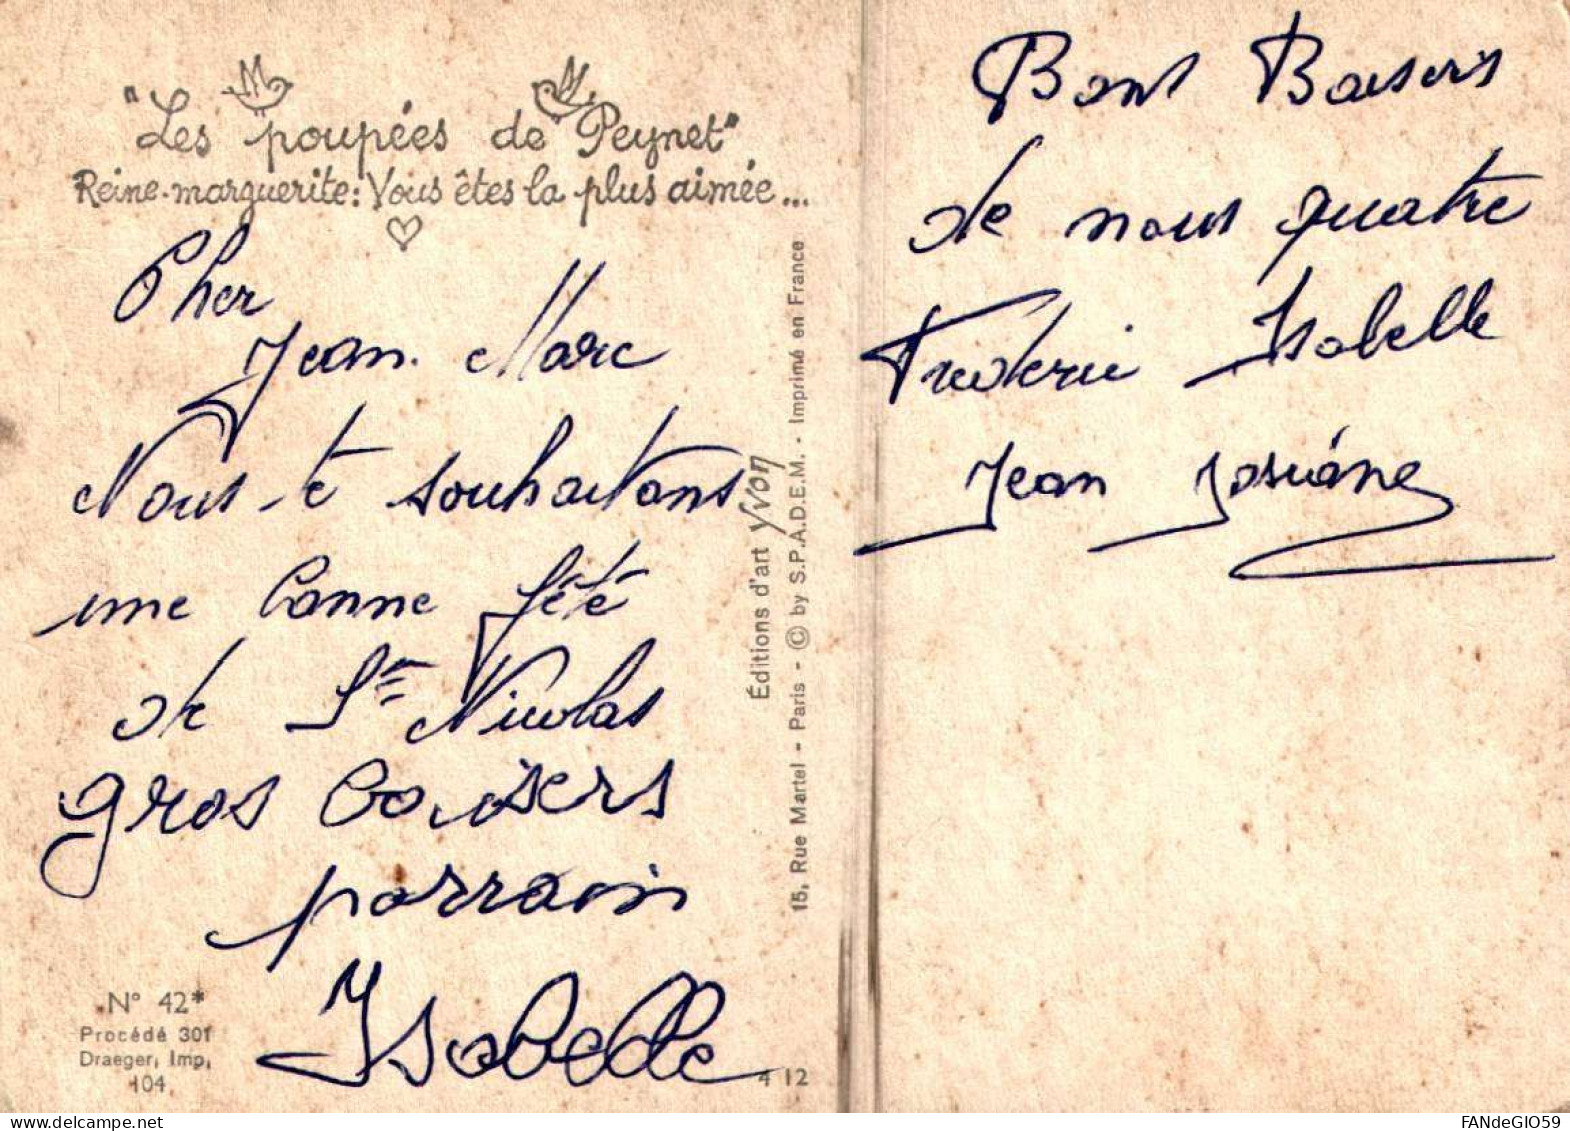 "Les poupées de Peynet"
Reine-marguerite: Vous êtes la plus aimée...
Cher
Jean Marc
Nous te souhaitons
une bonne fête
de St Nicolas
gros baisers
parrain
Isabelle
N° 42*
Procédé 301
Draeger, Imp,
104
4 12
Éditions d'art Yvon
15, Rue Martel - Paris - © by S.P.A.D.E.M. - Imprimé en France
Bons Baisers
de nous quatre
Frederic Isabelle
Jean Josiane
FANdeGIO59